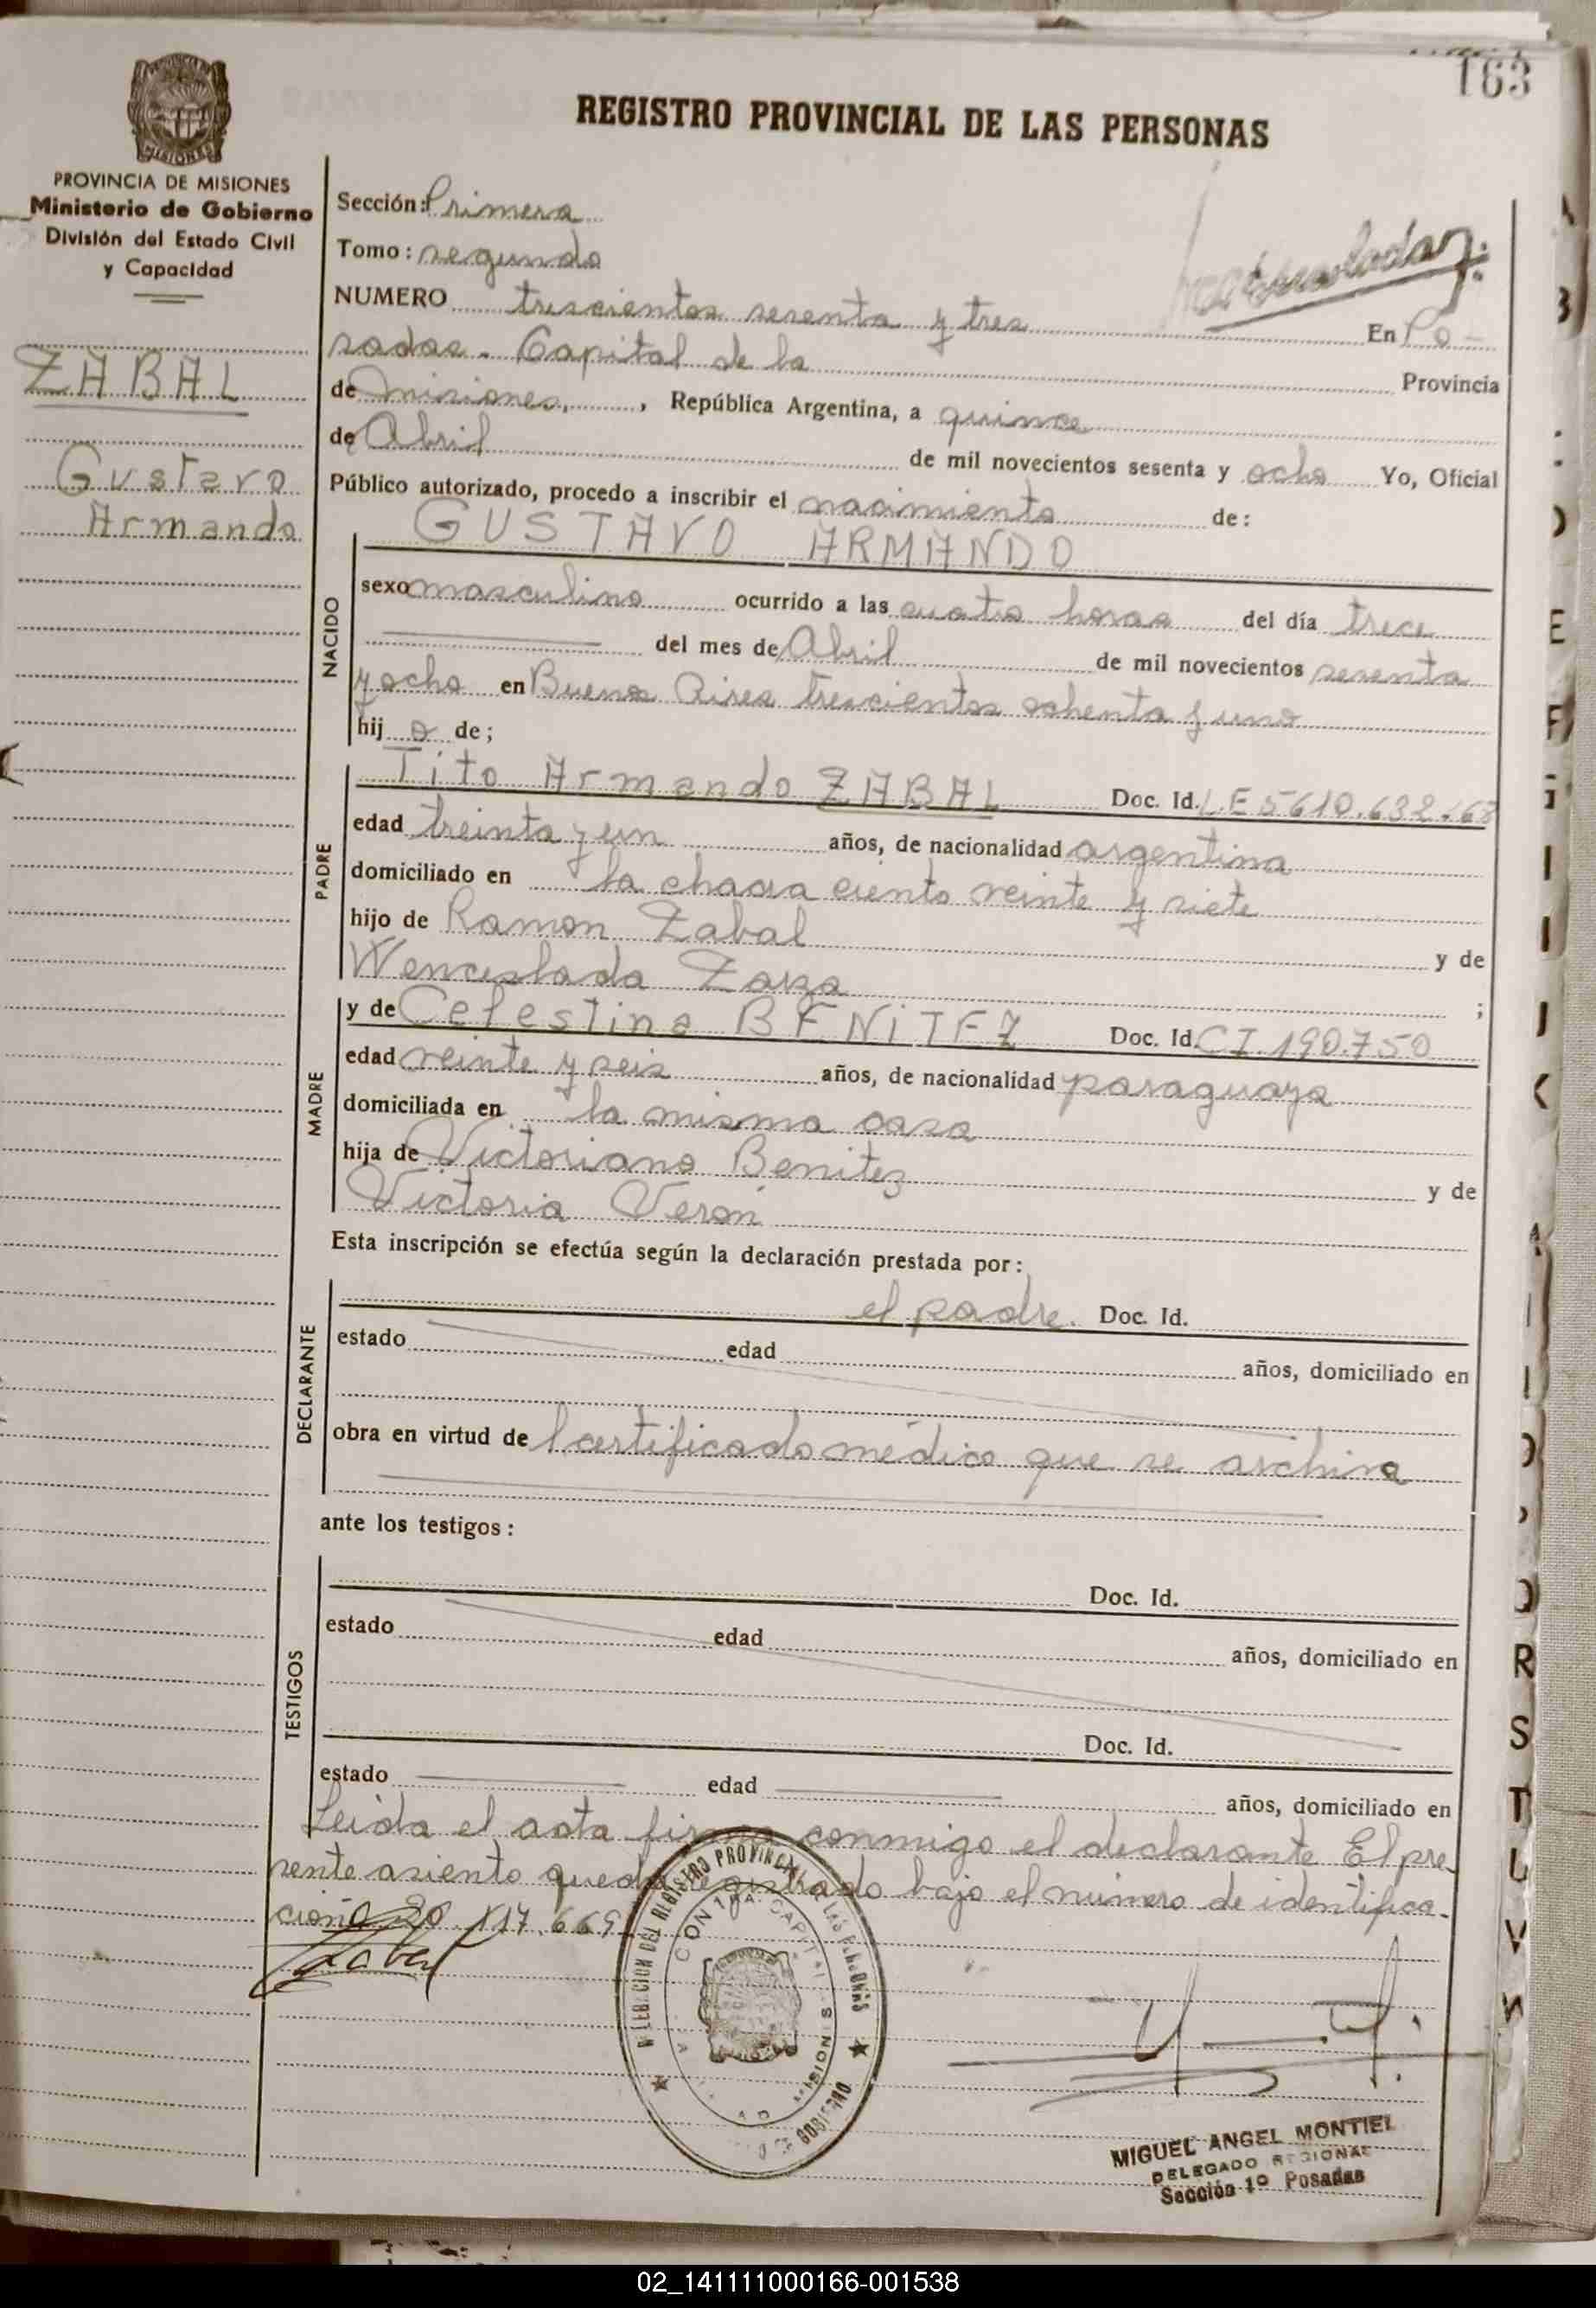 163
REGISTRO PROVINCIAL DE LAS PERSONAS
MISIONES
PROVINCIA DE MISIONES
Ministerio de Gobierno
División del Estado Civil
y Capacidad
ZABAL
Gustavo
Armando
Sección: Primera
Tomo: segundo
NUMERO trescientos sesenta y tres En Po-
sadas. Capital de la Provincia
de Misiones, , República Argentina, a quince
de Abril de mil novecientos sesenta y ocho Yo, Oficial
Público autorizado, procedo a inscribir el nacimiento de:
GUSTAVO ARMANDO
NACIDO
sexo masculino ocurrido a las cuatro horas del día trece
del mes de Abril de mil novecientos sesenta
y ocho en Buenos Aires trescientos ochenta y uno
hij o de;
PADRE
Tito Armando ZABAL Doc. Id. L.E 5610.632.
edad treinta y un años, de nacionalidad argentina
domiciliado en la chacra ciento veinte y siete
hijo de Ramon Zabal y de
Wenceslada Zarza ;
MADRE
y de Celestina BENITEZ Doc. Id. CI. 190.750
edad veinte y seis años, de nacionalidad paraguaya
domiciliada en la misma casa
hija de Victoriano Benitez y de
Victoria Verón
Esta inscripción se efectúa según la declaración prestada por:
DECLARANTE
el padre. Doc. Id.
estado edad años, domiciliado en
obra en virtud de l certificado médico que se archiva
ante los testigos:
TESTIGOS
Doc. Id.
estado edad años, domiciliado en
Doc. Id.
estado edad años, domiciliado en
Leída el acta firma conmigo el declarante. El pre-
sente asiento queda registrado bajo el número de identifica-
ción 20.117.669
Zabal
DEL REGISTRO PROVINCIAL DE LAS PERSONAS
CAPITAL
MISIONES
GOBIERNO
MIGUEL ANGEL MONTIEL
DELEGADO REGIONAL
Sección 1º Posadas
E
F
G
I
I
J
K
R
S
T
U
V
W
02_141111000166-001538